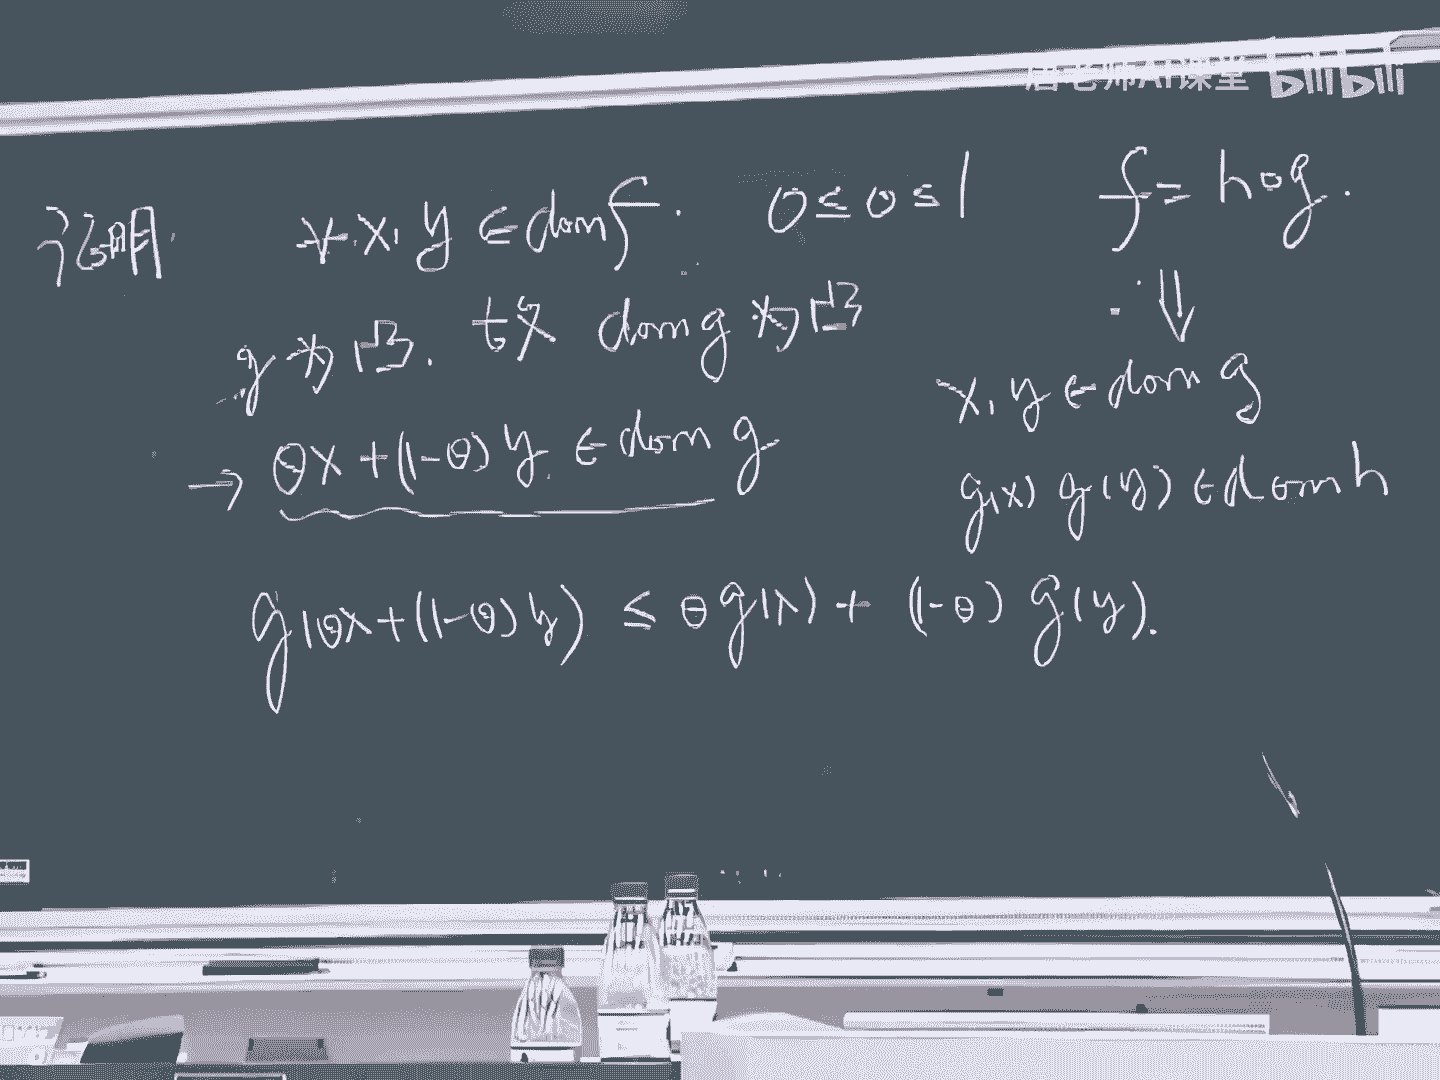 唐老师AI课堂 bilibili
证明. ∀ x, y ∈ dom f. 0 ≤ θ ≤ 1 f = h∘g.
g 为凸. 故 dom g 为凸 ⇓
x, y ∈ dom g
→ θx + (1-θ) y ∈ dom g
g(x) g(y) ∈ dom h
g(θx + (1-θ) y) ≤ θ g(x) + (1-θ) g(y).